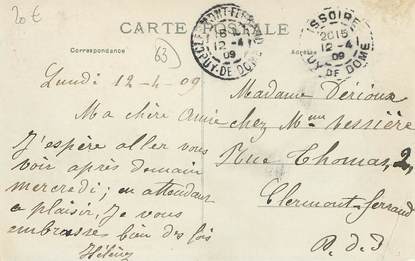 20 €
CARTE POSTALE
Correspondance
63
Adresse
CLERMONT-FERRAND
12-4
09
PUY-DE-DOME
ISSOIRE
2015
12-4
09
PUY-DE-DOME
Lundi 12-4-09
Ma chère Amie
J'espère aller vous
voir après demain
mercredi; en attendant
ce plaisir, Je vous
embrasse bien des fois
Hélène
Madame Derioux
chez Mme Vessière
Rue Thomas, 2,
Clermont-Ferrand
P. d. D